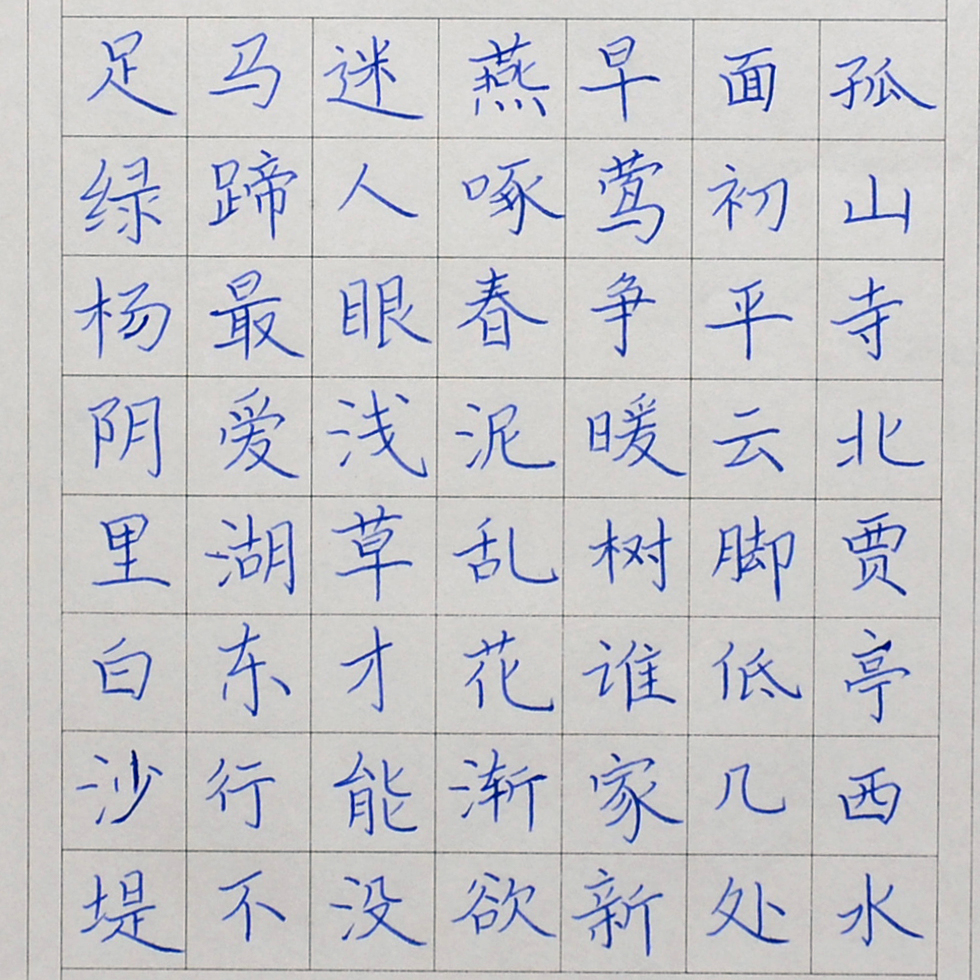 孤山寺北贾亭西水
面初平云脚低几处
早莺争暖树谁家新
燕啄春泥乱花渐欲
迷人眼浅草才能没
马蹄最爱湖东行不
足绿杨阴里白沙堤